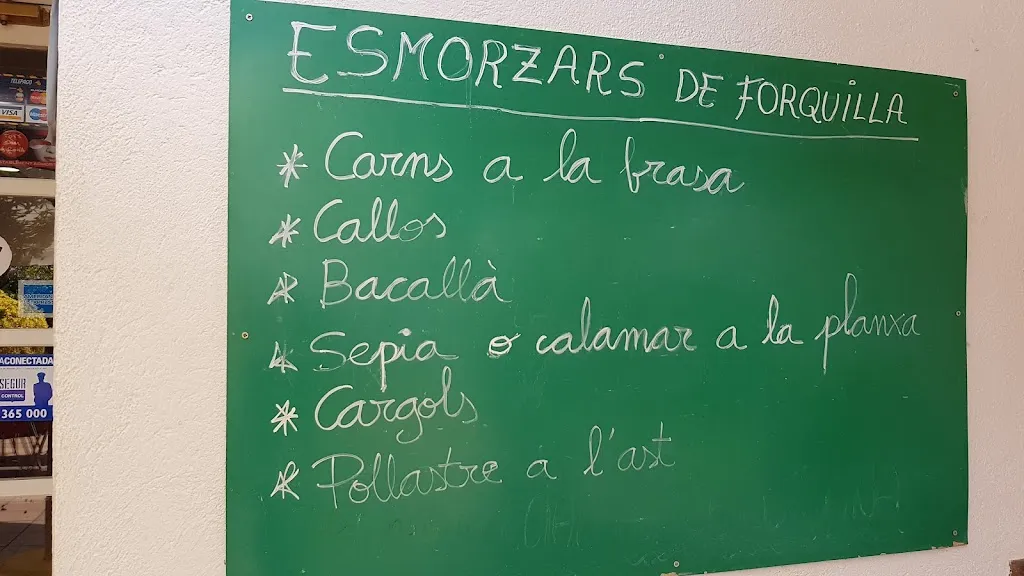 ESMORZARS DE FORQUILLA
* Carns a la brasa
* Callos
* Bacallà
* Sepia o calamar a la planxa
* Cargols
* Pollastre a l'ast
VISA
ACONECTADA
SEGUR
CONTROL
365 000